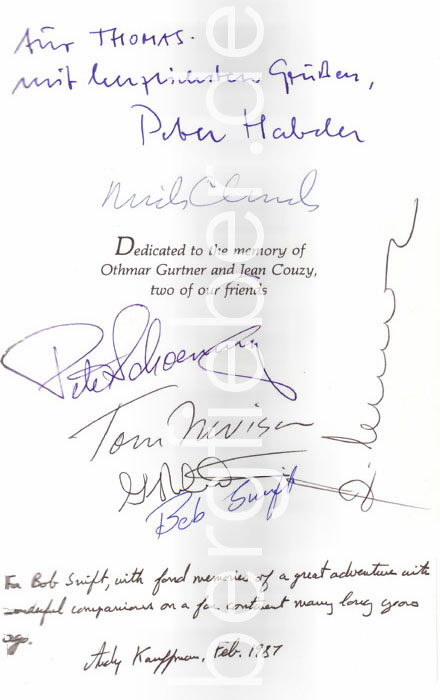 Für THOMAS.
mit herzlichsten Grüßen,
Peter Habeler
Nick Clinch
Dedicated to the memory of
Othmar Gurtner and Jean Couzy,
two of our friends
Pete Schoening
Tom Nevison
Bob Swift
For Bob Swift, with fond memories of a great adventure with
wonderful companions on a far continent many long years
ago.
Andy Kauffman, Feb. 1987
bergfieber.de